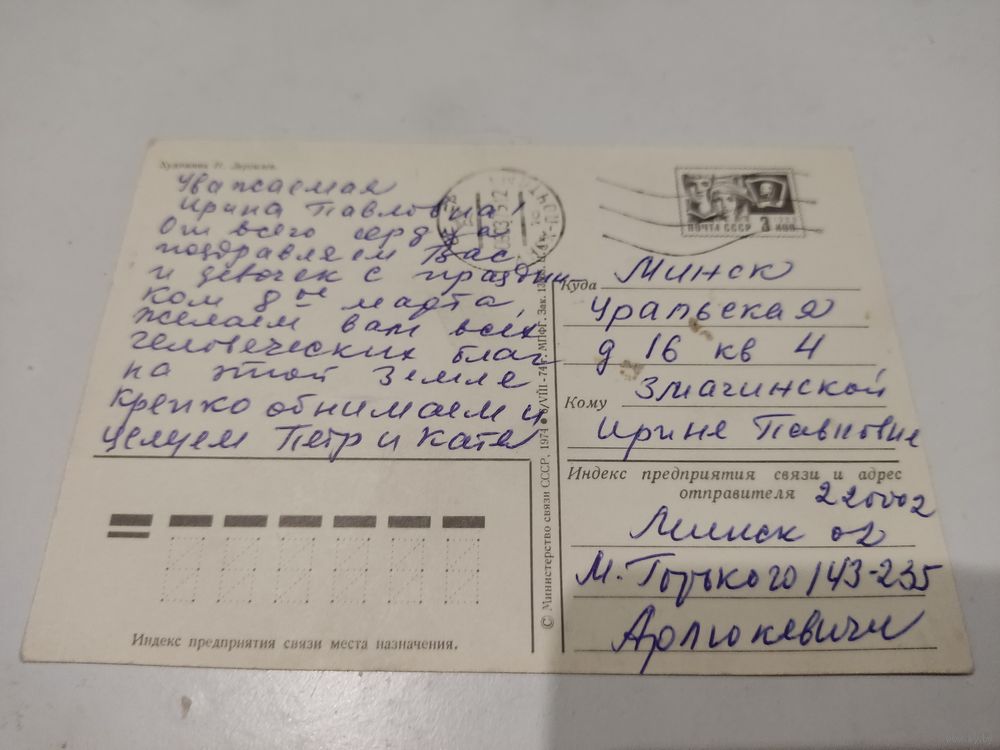 Художник
Уважаемая
Ирина Павловна!
От всего сердца
поздравляем Вас
и девочек с праздни
ком 8ое марта,
желаем вам всех
человеческих благ
на этой земле
крепко обнимаем и
целуем Петр и Катя
ПОЧТА СССР 3 КОП
Куда Минск
Уральская
д 16 кв 4
Змачинской
Кому
Ирине Павловне
Индекс предприятия связи и адрес
отправителя 220002
Минск 02
М. Горького 143-235
Арлюкевичи
Индекс предприятия связи места назначения.
© Министерство связи СССР, 1974 ● 6/VIII-74 г. МПФГ. Зак.